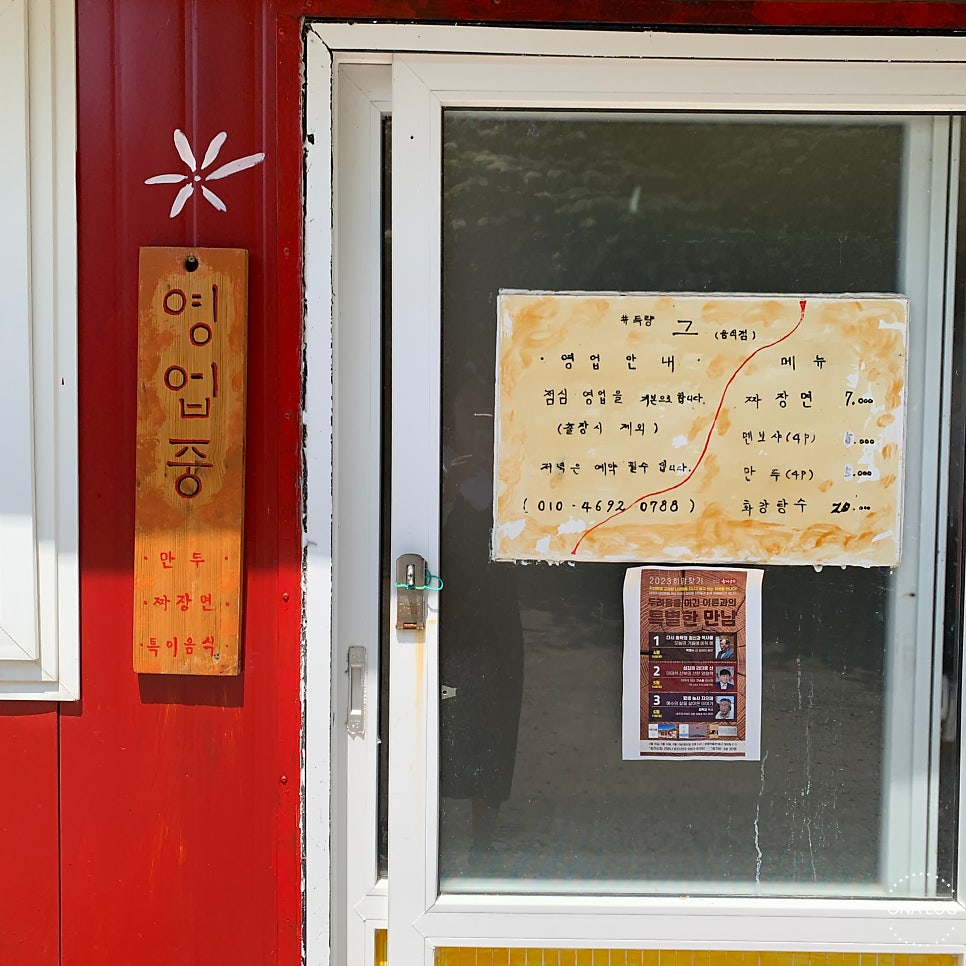 영업중
· 만두 ·
· 짜장면 ·
· 특이음식 ·
#득량 그 (음식점)
· 영업안내 ·
점심 영업을 기본으로 합니다.
(출장시 제외)
저녁은 예약 필수 입니다.
(010-4692 0788)
메뉴
짜장면 7.000
멘보샤(4P) 5.000
만두(4P) 5.000
화강탕수 20.000
2023희망찾기
두려움을 이긴 이들과의
특별한 만남
1
2
3